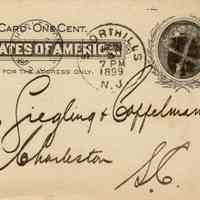 CARD-ONE CENT.
ATES OF AMERICA
FOR THE ADDRESS ONLY.
ORTHILLS
7 PM
1899
N.J.
Siegling & Coppelman
Charleston
S.C.